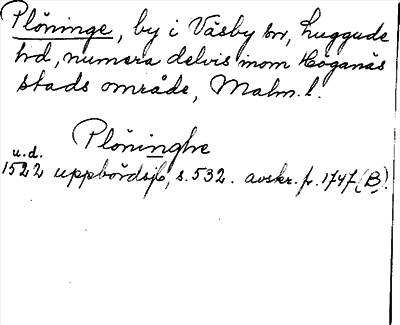 Plöninge, by i Väsby sn, Luggude
hd, numera delvis inom Höganäs
stads område, Malm. l.
Plöninghe
u.d.
1522 uppbördsjb, s. 532. avskr. fr. 1747 (B).